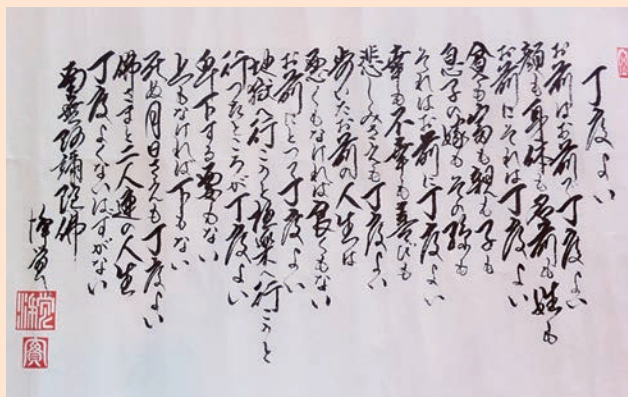 丁度よい
お前はお前で丁度よい
顔も身体も名前も姓も
お前にそれは丁度よい
貧も富も親も子も
息子の嫁もその孫も
それはお前に丁度よい
幸も不幸も喜びも
悲しみさえも丁度よい
歩いたお前の人生は
悪くもなければ良くもない
お前にとって丁度よい
地獄へ行こうと極楽へ行こうと
行ったところが丁度よい
卑下する要もない
上もなければ下もない
死ぬ月日さえも丁度よい
佛さまと二人連の人生
丁度よくないはずがない
南無阿彌陀佛